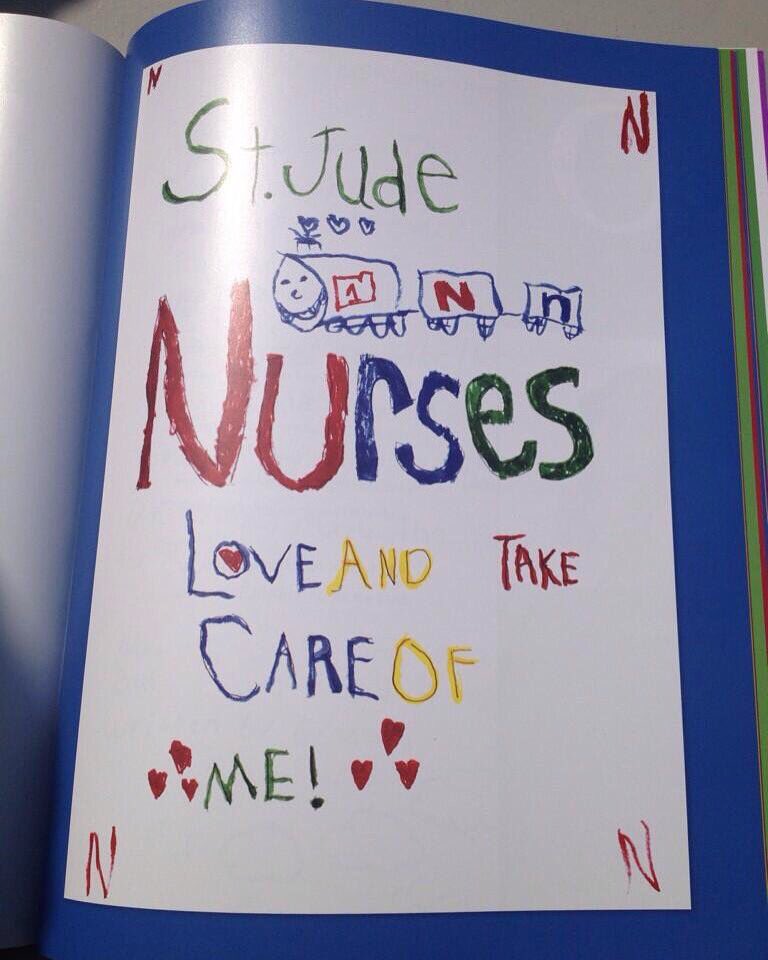 N N
St. Jude
N N n
Nurses
LOVE AND TAKE
CARE OF
ME!
N N